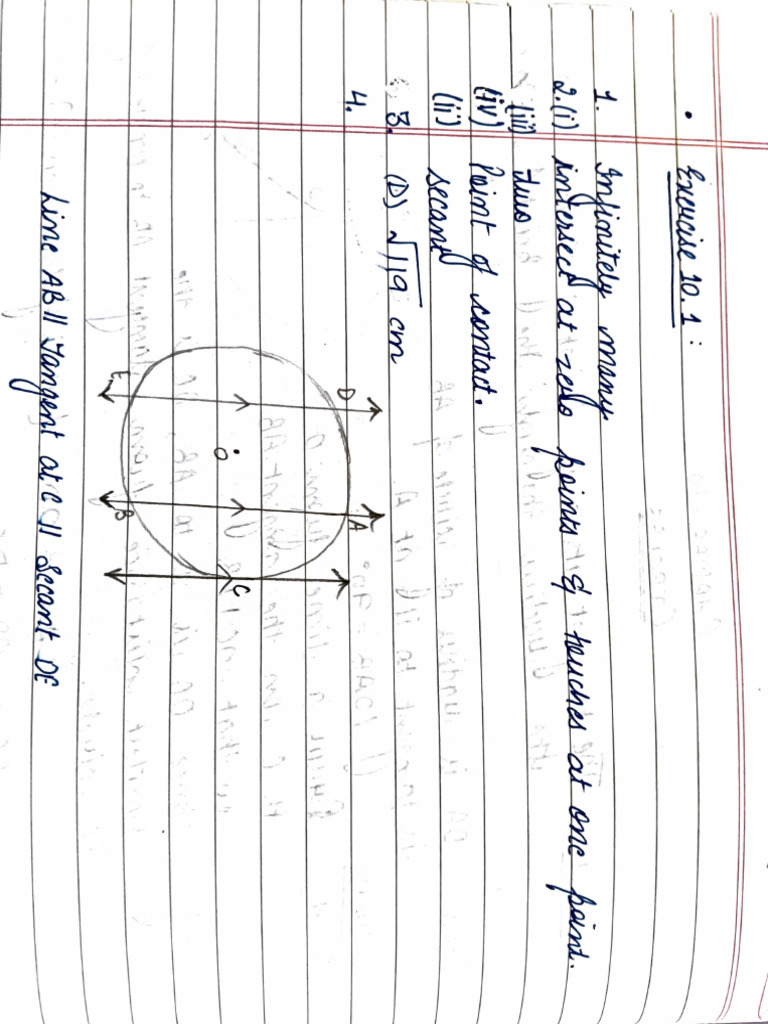 • Exercise 10.1 :
1. Infinitely many
2.(i) intersect at zero points & touches at one point.
(iii) two
(iv) Point of contact.
(ii) secant
3. (D) √119 cm
4.
D A
O C
E B
Line AB || Tangent at C || Secant DE